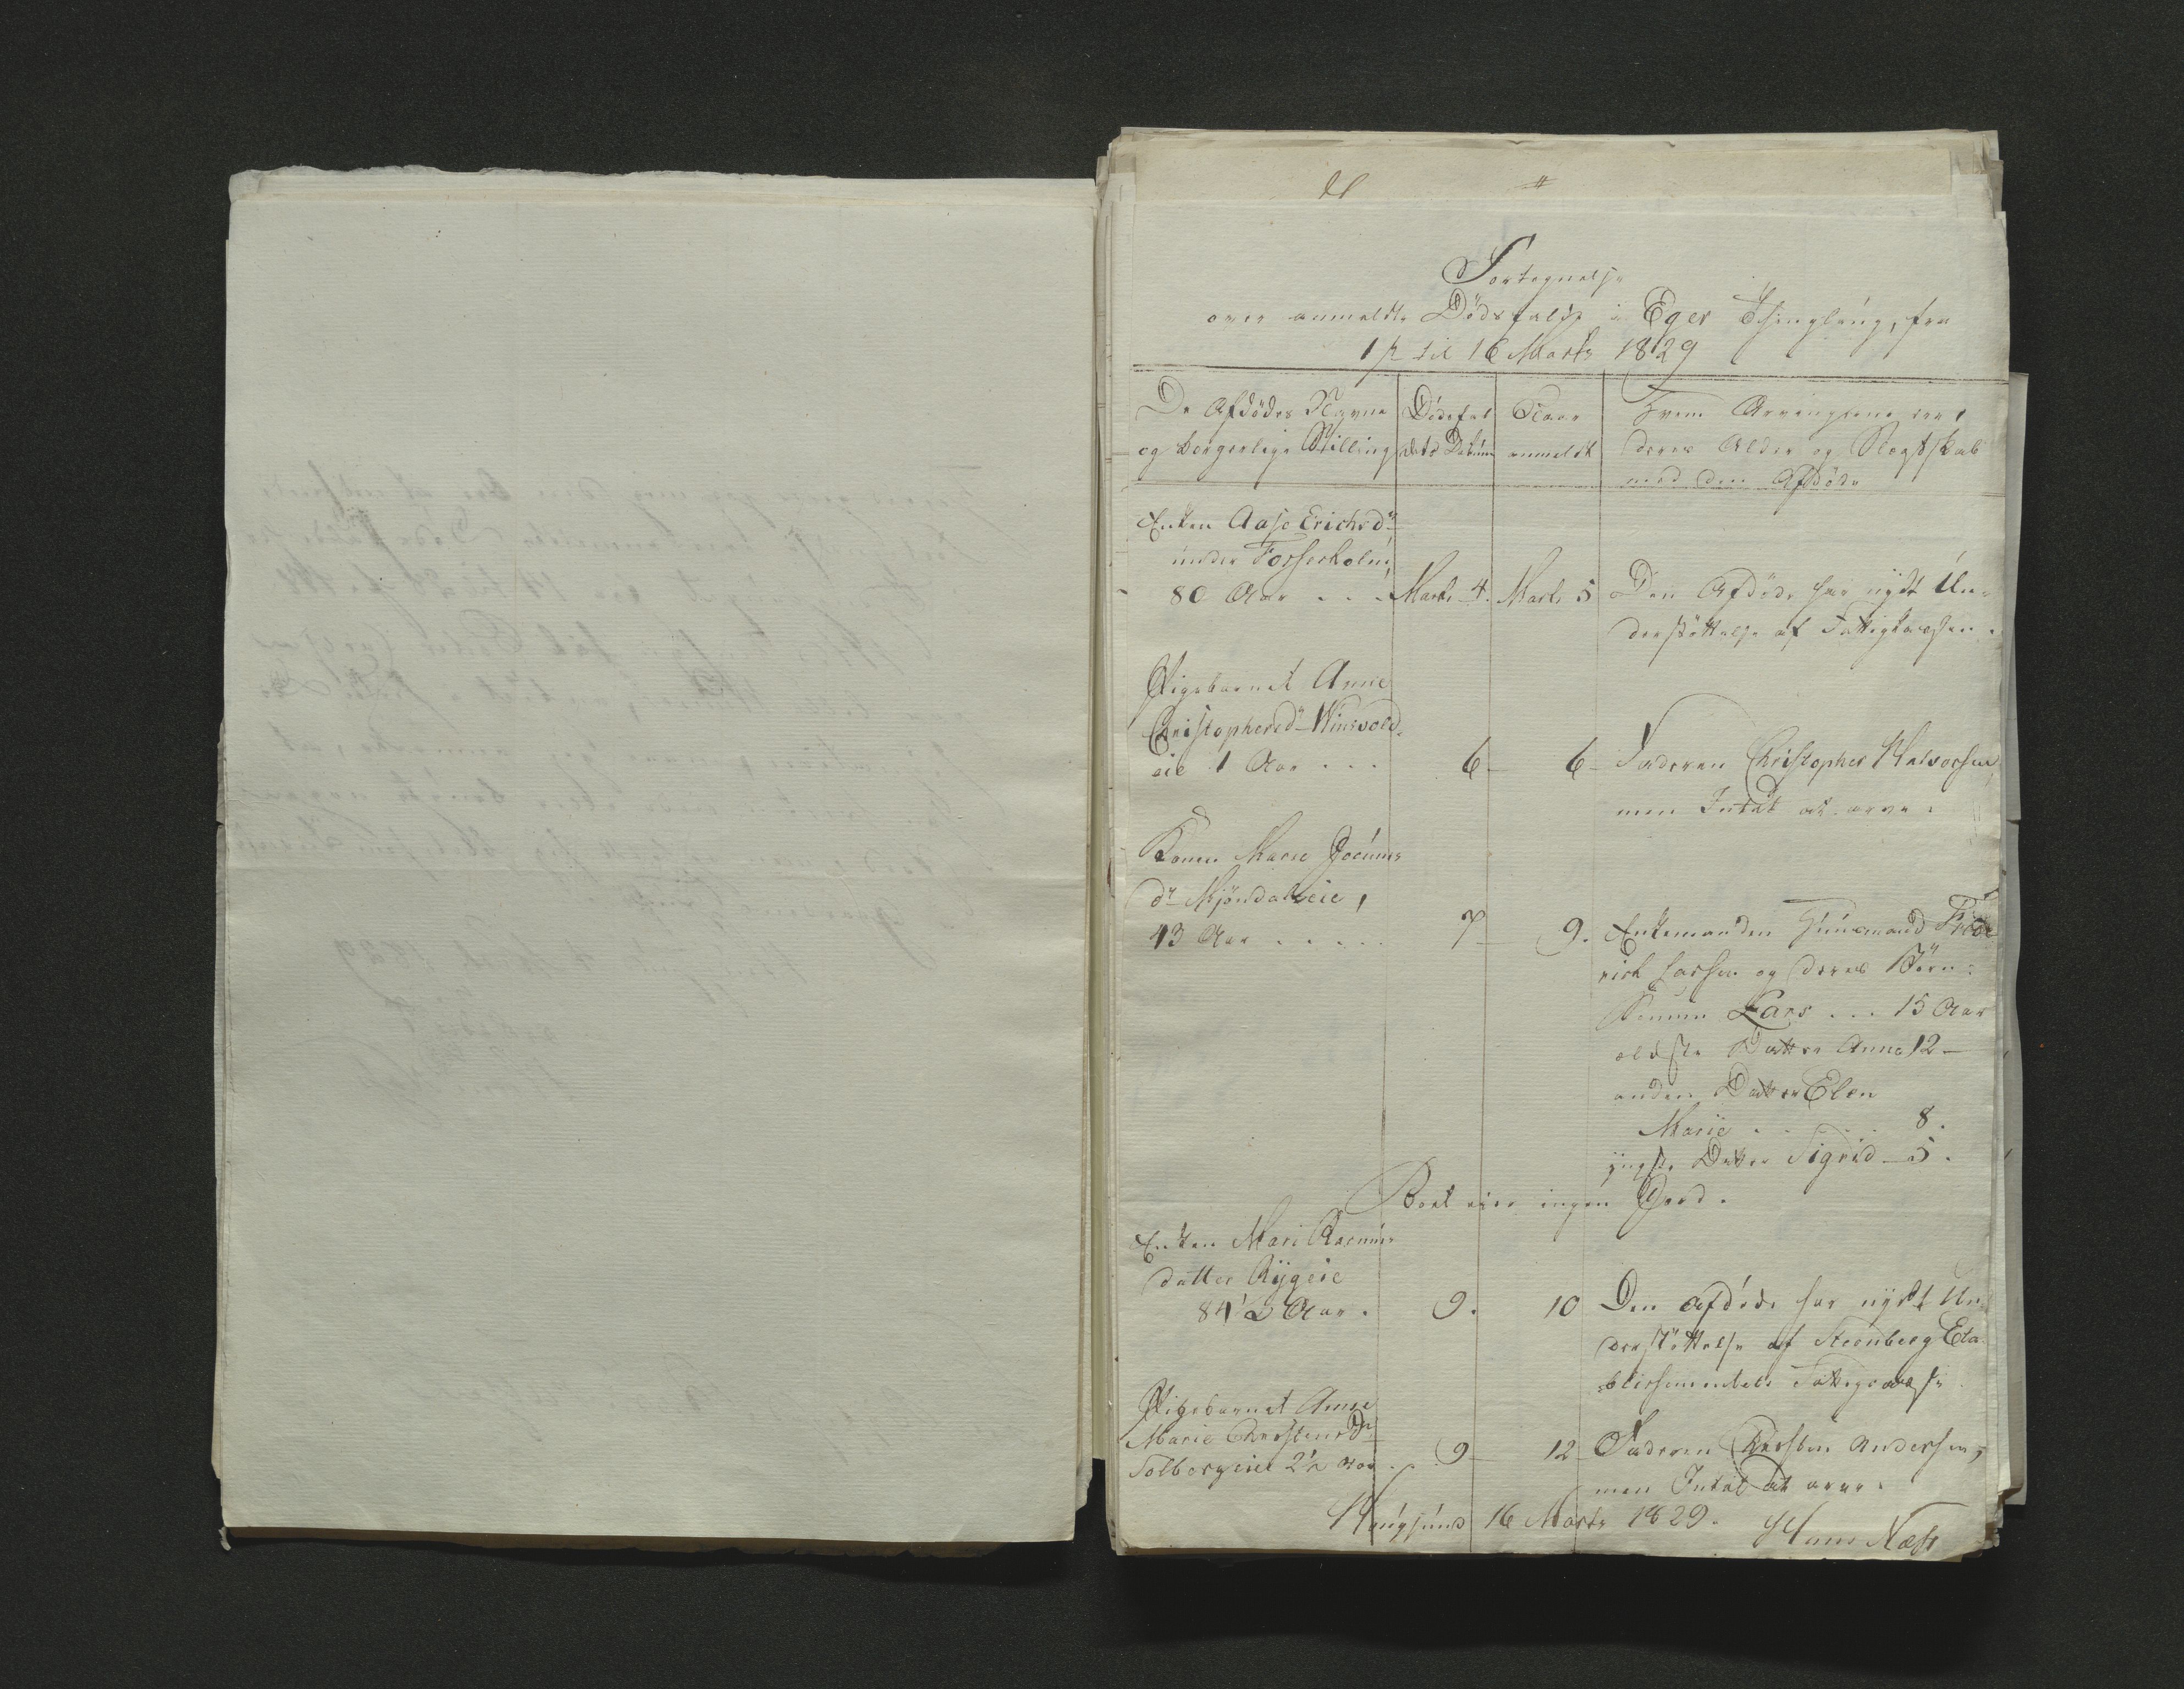 Fortegnelse
over anmeldte Dödsfalde i Eger Thinglaug, fra
1ste til 16 Marts 1829
De Afdödes Navne
og borgerlige Stilling
Dödsfal
dets Datum
Naar
anmeldt
Hvem Arvingerne ere,
deres Alder og Slægtskab
med den Afdöde
Enken Aase Erichsdr
under Fosserholm,
80 Aar . . . Marts 4. Marts 5 Den Afdöde har nydt Un-
derstöttelse af Fattigkassen.
Pigebarnet Anne
Christophersdr Winsvold
eie 1 Aar . . . 6 - 6 - Faderen Christopher Halvorsen,
men Intet at arve.
Konen Marie Jocums
dr Mjöndalseie,
43 Aar . . . . . 7 - 9. Enkemanden Huusmand Fride-
rich Larsen og deres Börn:
Sönnen Lars . . . 15 Aar
eldste Datter Anne 12 -
anden Datter Elen
Marie . . . . . 8.
yngste Datter Sigrid - 5.
Boet eier ingen Jord.
Enken Mari Rasmus
datter Rygeie
84½ Aar. 9. 10 Den afdöde har nydt Un-
derstöttelse af Steenberg Eta
blissementets Fattigvæsen
Pigebarnet Anne
Marie Christensdr
Solbergeie 2½ Aar . . . 9 - 12 - Faderen Christen Andersen,
men Intet at arve.
Haugsund 16 Marts 1829. Hans Næss